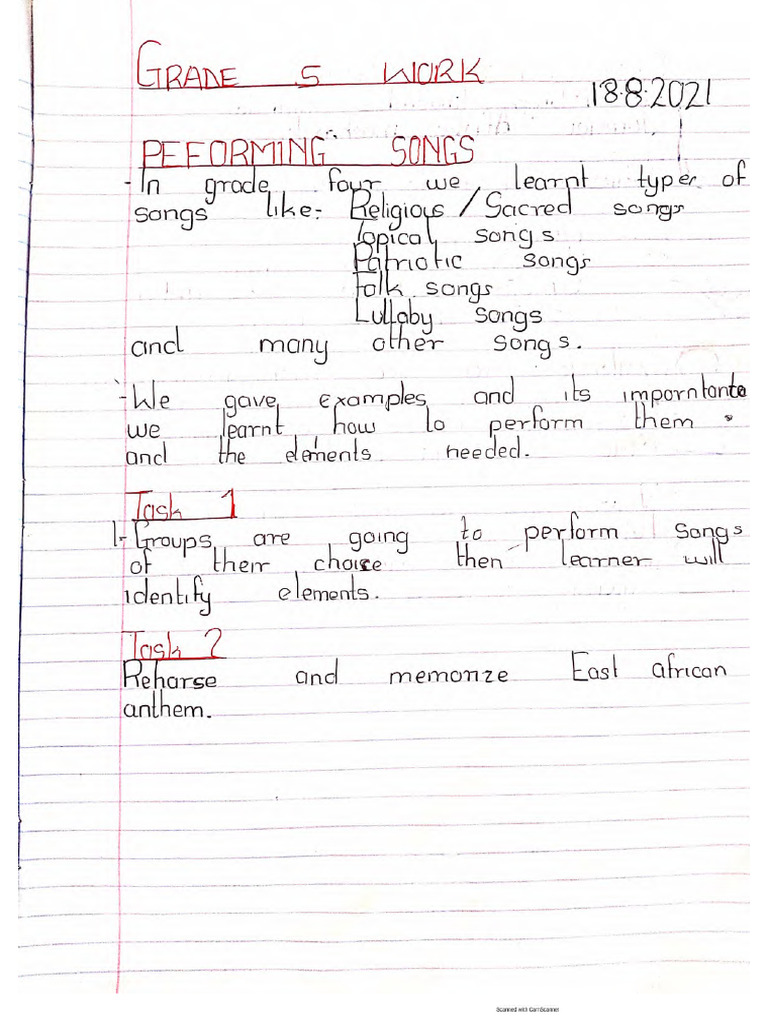 GRADE 5 WORK
18.8.2021
PEFORMING SONGS
- In grade four we learnt types of
songs like:- Religious / Sacred songs
Topical songs
Patriotic songs
Folk songs
Lullaby songs
and many other songs.
- We gave examples and its imporntante
we learnt how to perform them
and the elements needed.
Task 1
1- Groups are going to perform songs
of their choice then learner will
identify elements.
Task 2
Reharse and memorize East african
anthem.
Scanned with CamScanner